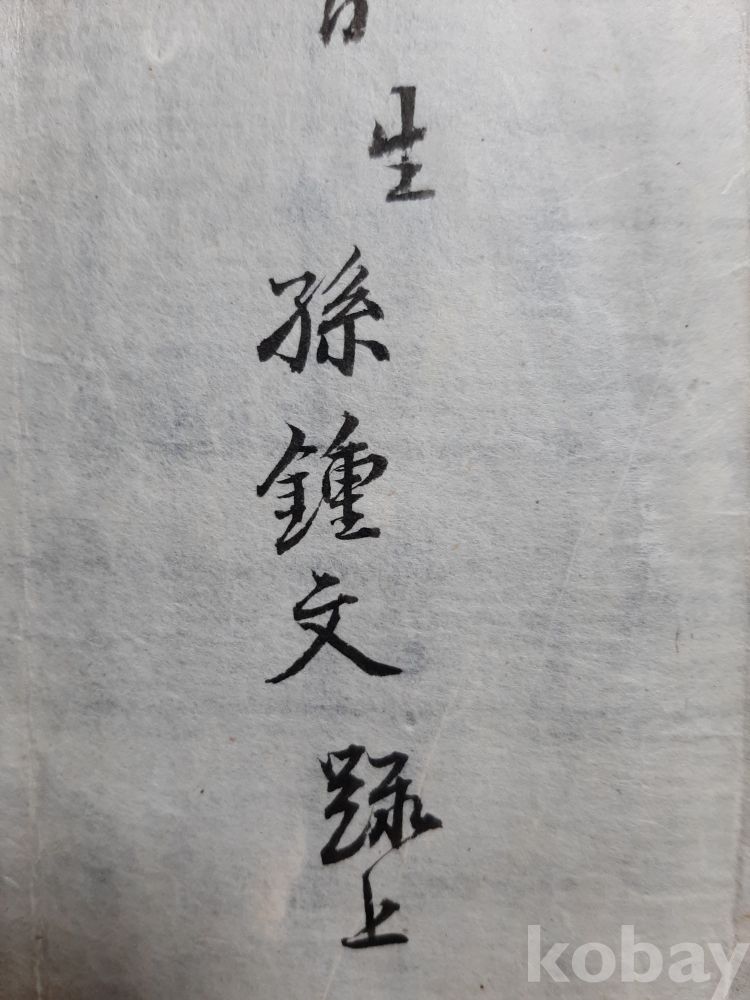 生 孫鍾文 疏上
kobay